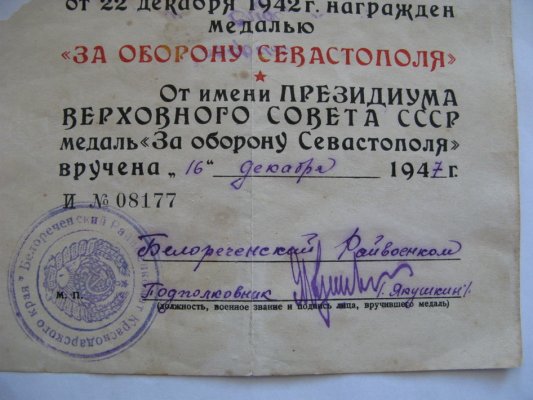 от 22 декабря 1942 г. награжден
медалью
«ЗА ОБОРОНУ СЕВАСТОПОЛЯ»
От имени ПРЕЗИДИУМА
ВЕРХОВНОГО СОВЕТА СССР
медаль «За оборону Севастополя»
вручена „16" декабря 1947 г.
И № 08177
Белореченский Райвоенком
м. п.
Подполковник (Якушкин)
(должность, военное звание и подпись лица, вручившего медаль)
Белореченский Краснодарского края